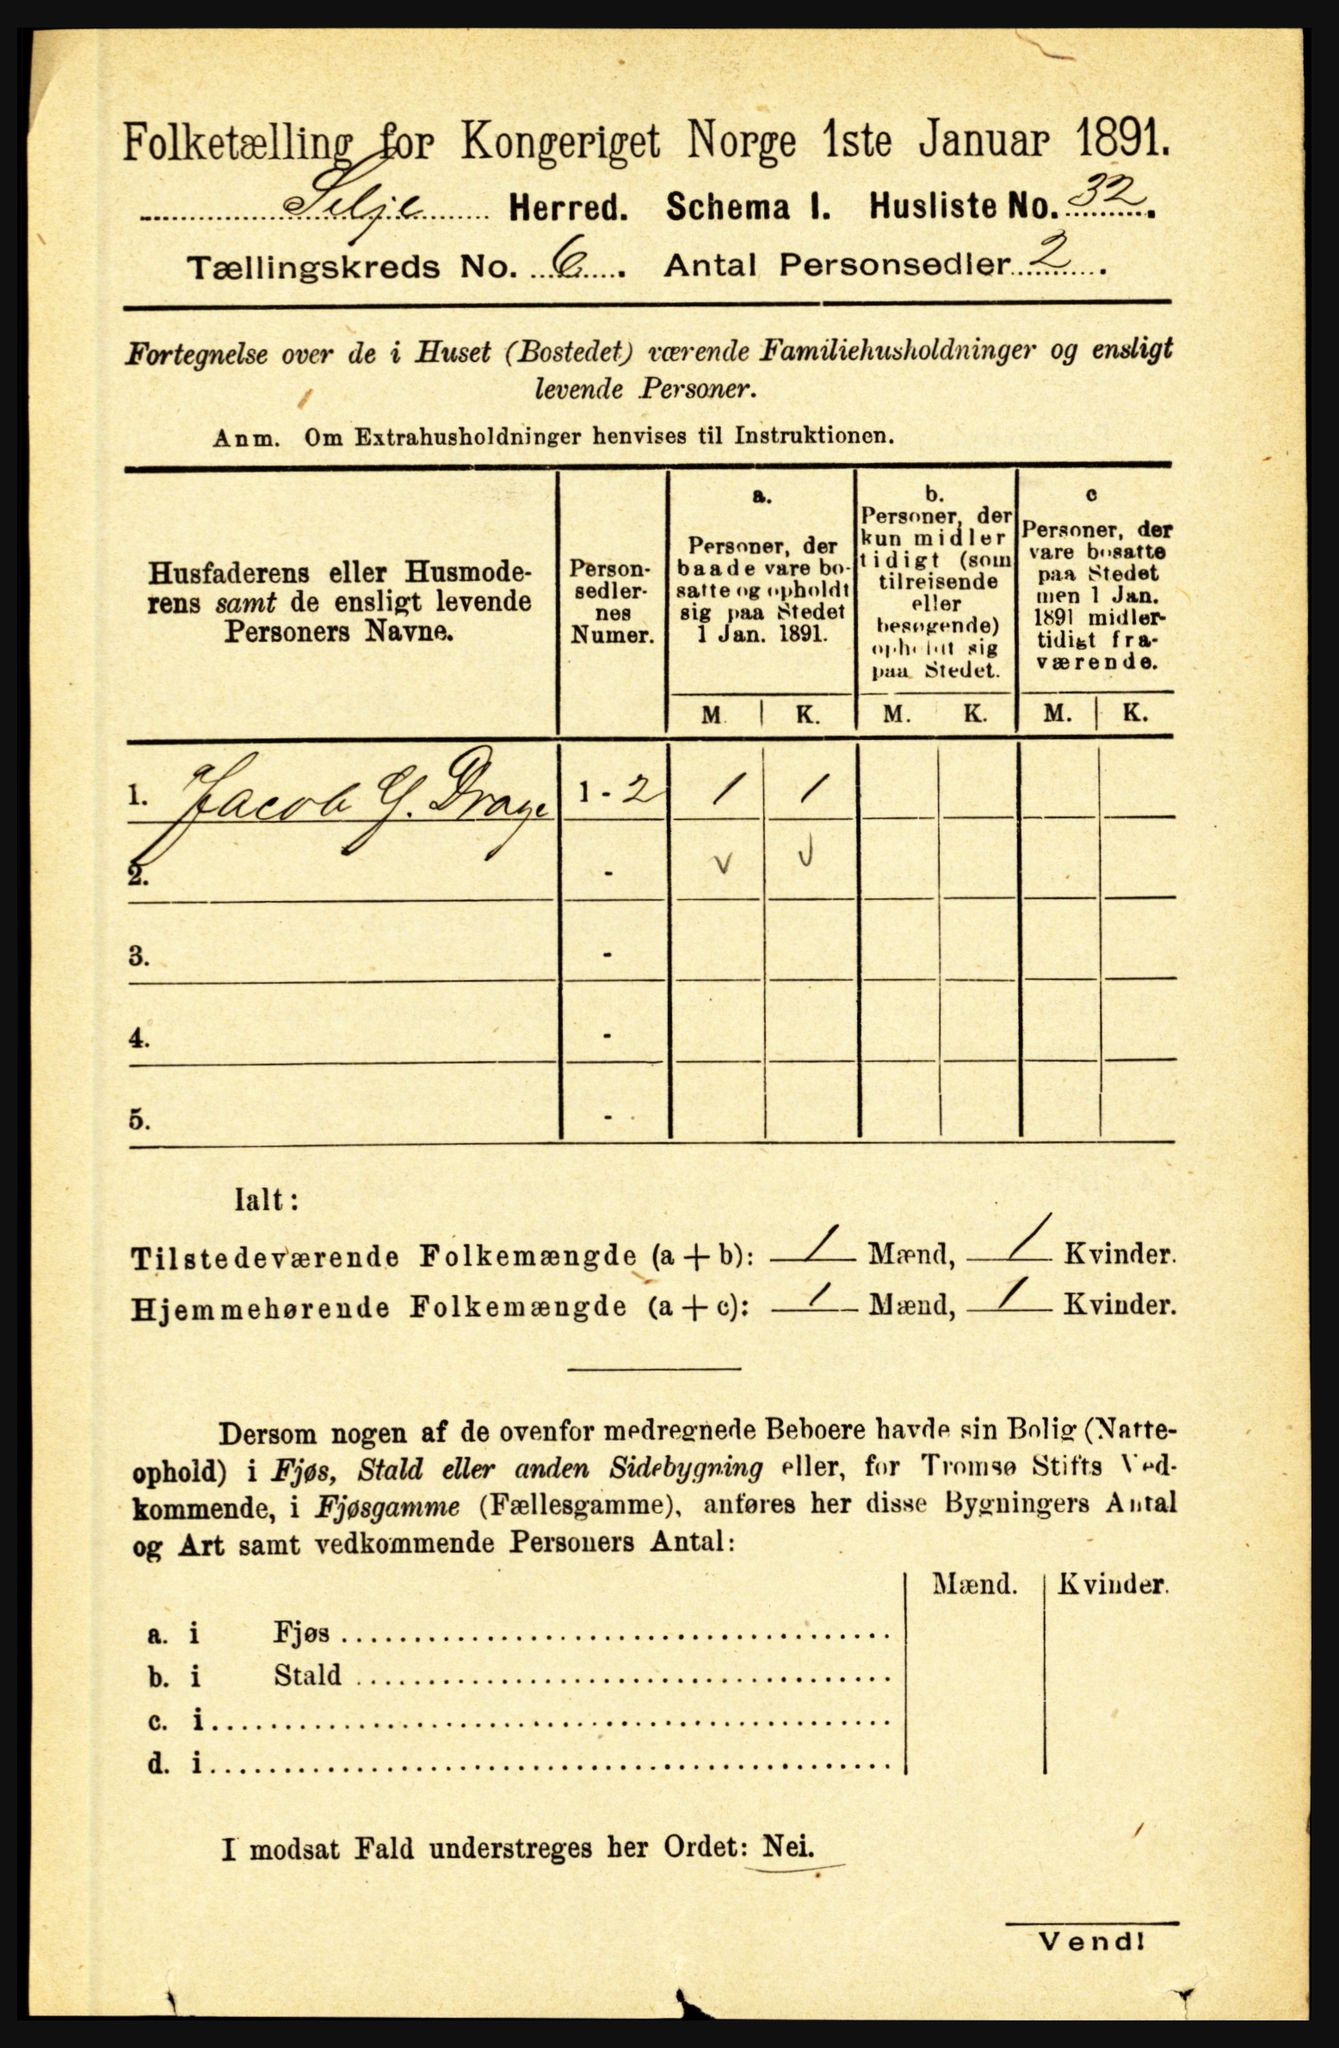 Folketælling for Kongeriget Norge 1ste Januar 1891.
Selje Herred. Schema I. Husliste No. 32.
Tællingskreds No. 6. Antal Personsedler 2.
Fortegnelse over de i Huset (Bostedet) værende Familiehusholdninger og ensligt
levende Personer.
Anm. Om Extrahusholdninger henvises til Instruktionen.
Husfaderens eller Husmode-
rens samt de ensligt levende
Personers Navne.
Person-
sedler-
nes
Numer.
a.
Personer, der
baade vare bo-
satte og opholdt
sig paa Stedet
1 Jan. 1891.
b.
Personer, der
kun midler
tidigt (som
tilreisende
eller
besøgende)
opholdt sig
paa Stedet.
c
Personer, der
vare bosatte
paa Stedet
men 1 Jan.
1891 midler-
tidigt fra-
værende.
M. K. M. K. M. K.
1. Jacob G. Drage 1 - 2 1 1
2. - v v
3. -
4. -
5. -
Ialt:
Tilstedeværende Folkemængde (a + b): 1 Mænd, 1 Kvinder.
Hjemmehørende Folkemængde (a + c): 1 Mænd, 1 Kvinder.
Dersom nogen af de ovenfor medregnede Beboere havde sin Bolig (Natte-
ophold) i Fjøs, Stald eller anden Sidebygning eller, for Tromsø Stifts Ved-
kommende, i Fjøsgamme (Fællesgamme), anføres her disse Bygningers Antal
og Art samt vedkommende Personers Antal:
Mænd. Kvinder.
a. i Fjøs
b. i Stald
c. i
d. i
I modsat Fald understreges her Ordet: Nei.
Vend!